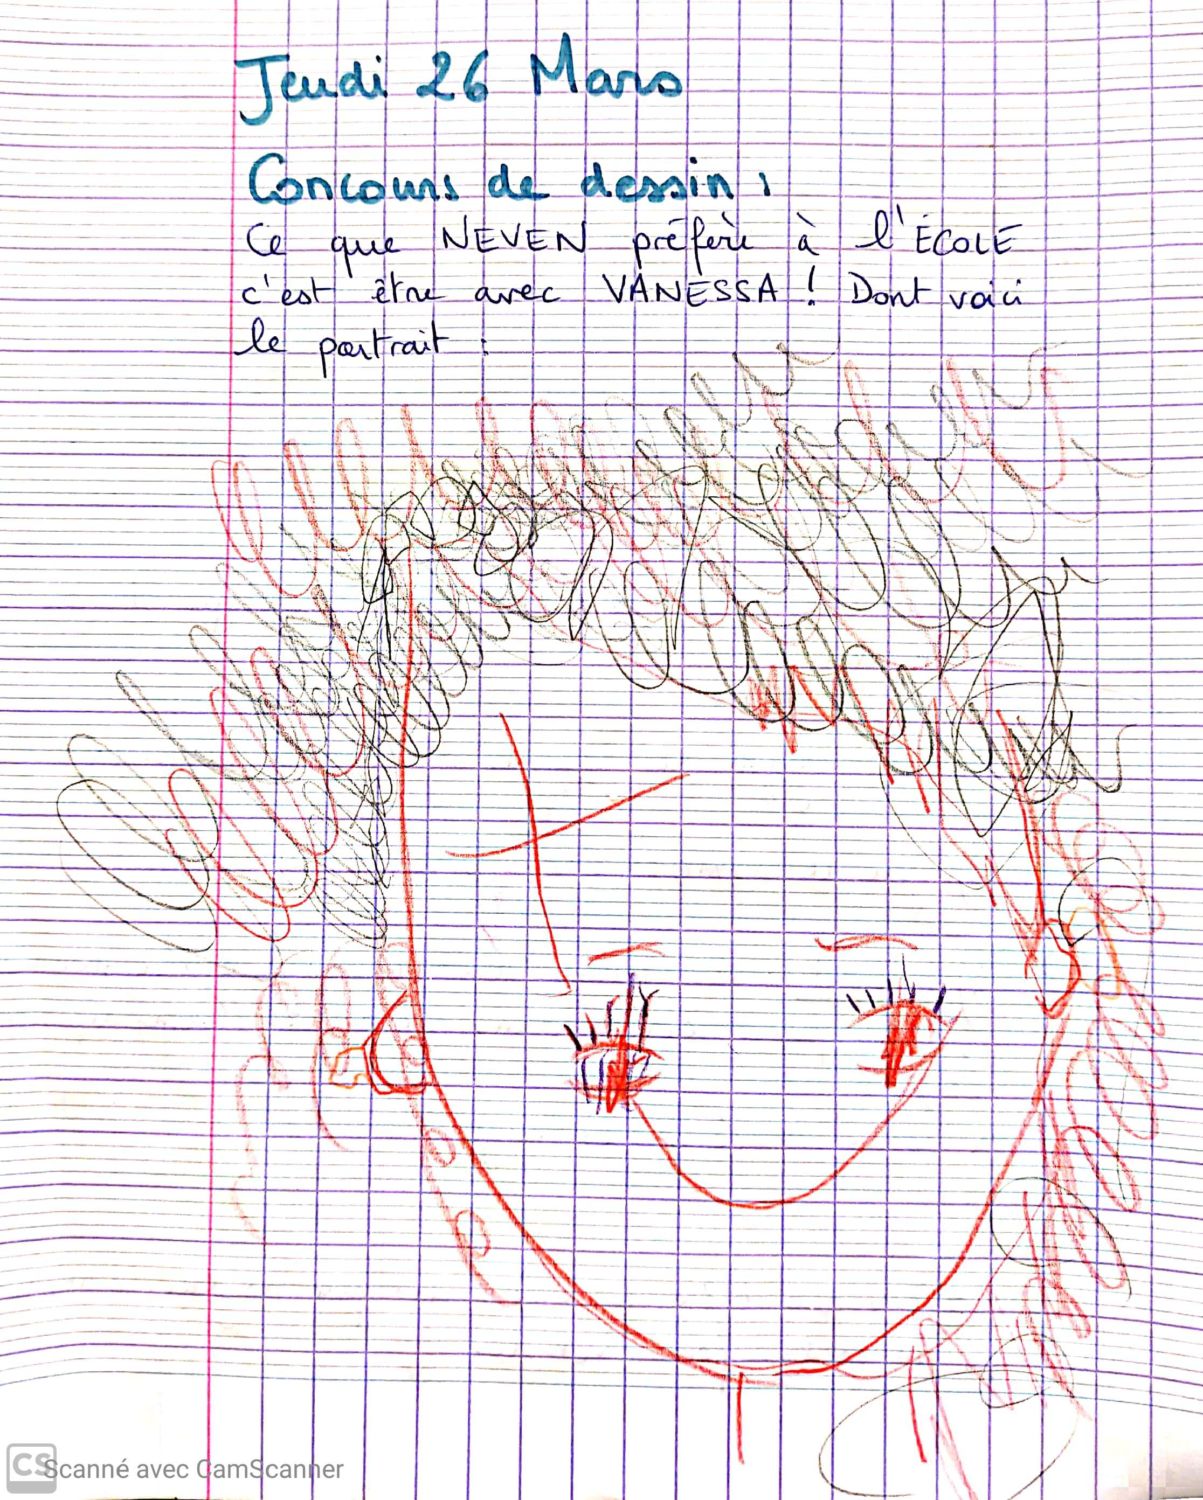 Jeudi 26 Mars
Concours de dessin :
Ce que NEVEN préfère à l'ÉCOLE
c'est être avec VANESSA ! Dont voici
le portrait :
CS Scanné avec CamScanner